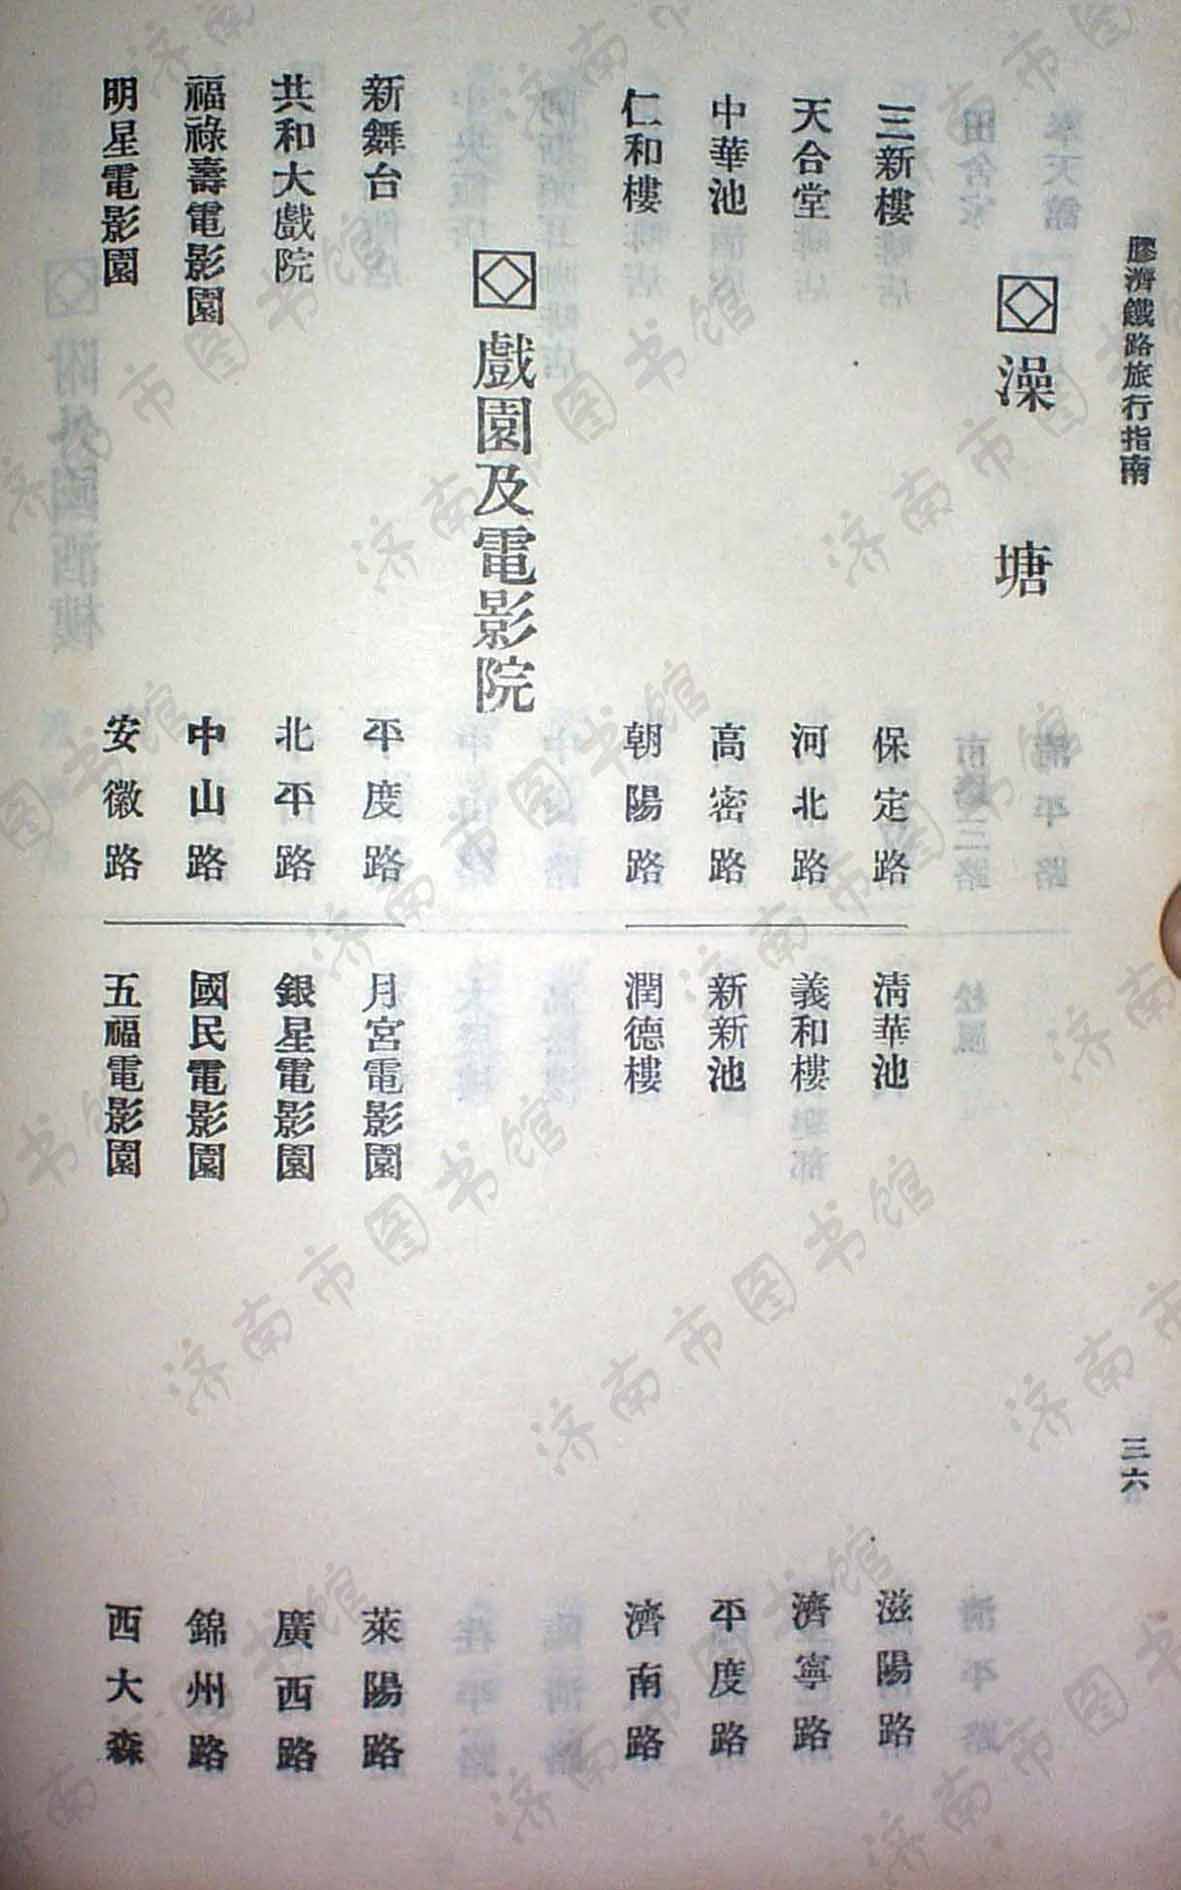 膠濟鐵路旅行指南
三六
澡塘
三新樓 保定路
清華池 滋陽路
天合堂 河北路
義和樓 濟寧路
中華池 高密路
新新池 平度路
仁和樓 朝陽路
潤德樓 濟南路
戲園及電影院
新舞台 平度路
月宮電影園 萊陽路
共和大戲院 北平路
銀星電影園 廣西路
福祿壽電影園 中山路
國民電影園 錦州路
明星電影園 安徽路
五福電影園 西大森
济南市图书馆